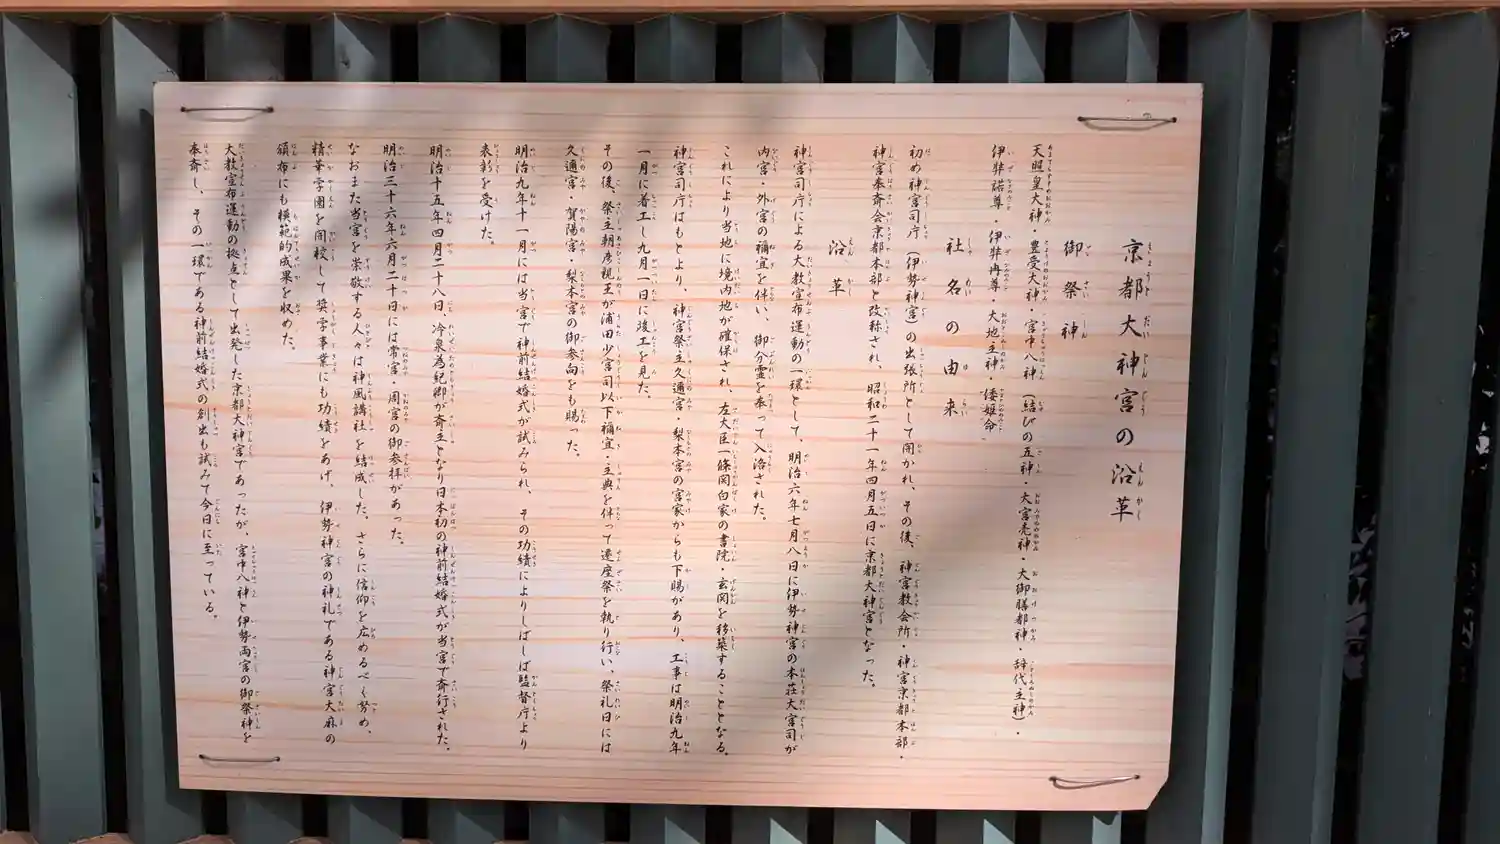 京都大神宮の沿革
御祭神
天照皇大神・豊受大神・宮中八神(結びの五神・大宮売神・大御膳都神・辞代主神)・
伊弉諾尊・伊弉冉尊・大地主神・倭姫命
社名の由来
初め神宮司庁(伊勢神宮)の出張所として開かれ、その後、神宮教会所・神宮京都本部・
神宮奉斎会京都本部と改称され、昭和二十一年四月五日に京都大神宮となった。
沿革
神宮司庁による大教宣布運動の一環として、明治六年七月八日に伊勢神宮の本荘大宮司が
内宮・外宮の禰宜を伴い、御分霊を奉って入洛された。
これにより当地に境内地が確保され、左大臣一條関白家の書院・玄関を移築することとなる。
神宮司庁はもとより、神宮祭主久邇宮・梨本宮の宮家からも下賜があり、工事は明治九年
一月に着工し九月一日に竣工を見た。
その後、祭主朝彦親王が浦田少宮司以下禰宜・主典を伴って遷座祭を執り行い、祭礼日には
久邇宮・賀陽宮・梨本宮の御参向をも賜った。
明治九年十一月には当宮で神前結婚式が試みられ、その功績によりしばしば監督庁より
表彰を受けた。
明治十五年四月二十八日、冷泉為紀卿が斎主となり日本初の神前結婚式が当宮で斎行された。
明治三十六年六月二十日には常宮・周宮の御参拝があった。
なおまた当宮を崇敬する人々は神風講社を結成した。さらに信仰を広めるべく努め、
精華学園を開校して奨学事業にも功績をあげ、伊勢神宮の神札である神宮大麻の
頒布にも模範的成果を収めた。
大教宣布運動の拠点として出発した京都大神宮であったが、宮中八神と伊勢両宮の御祭神を
奉斎し、その一環である神前結婚式の創出も試みて今日に至っている。